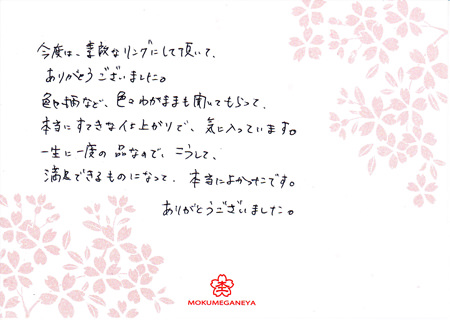 今度は、素敵なリングにして頂いて、
ありがとうございました。
色や柄など、色々わがままも聞いてもらって、
本当にすてきな仕上がりで、気に入っています。
一生に一度の品なので、こうして、
満足できるものになって、本当によかったです。
ありがとうございました。
MOKUMEGANEYA